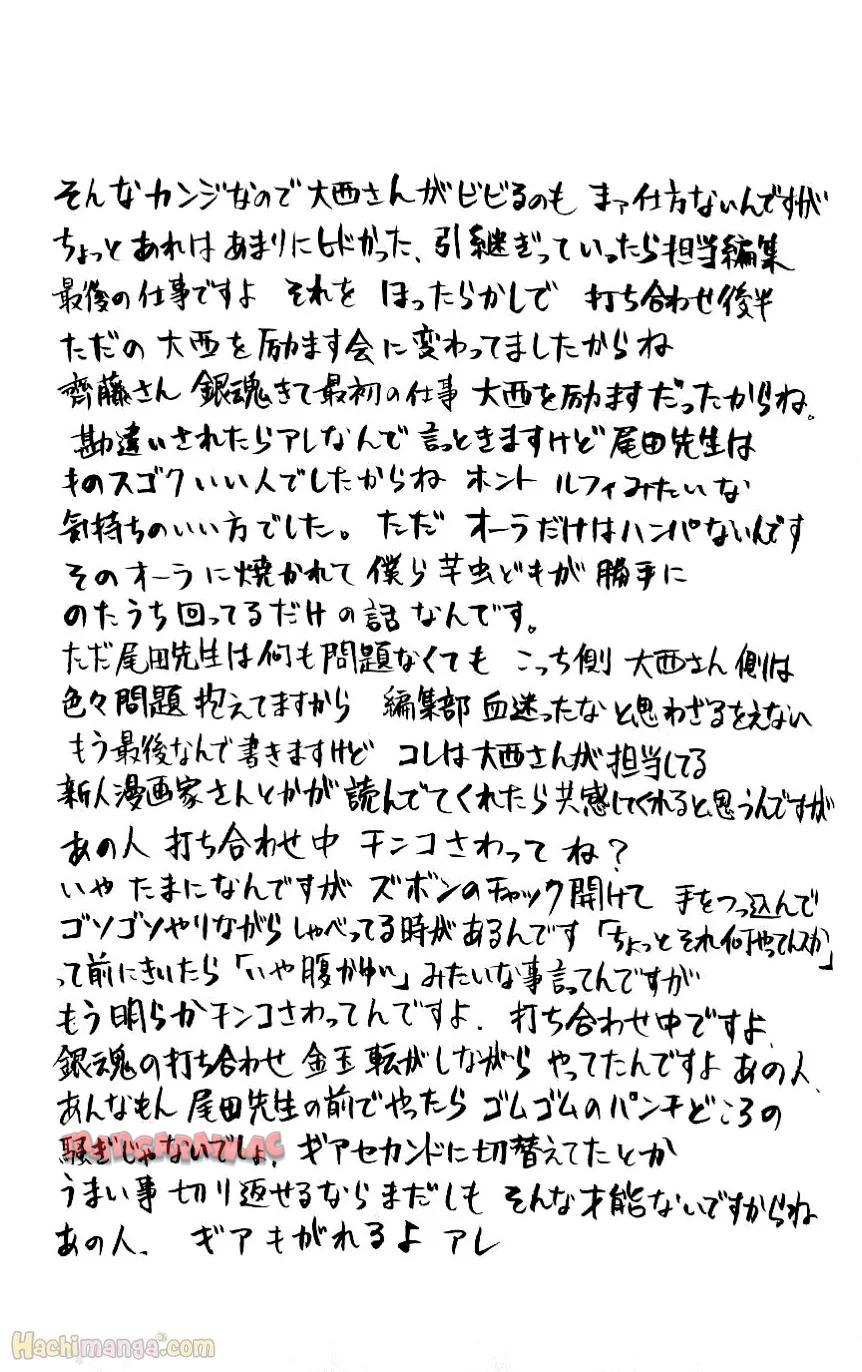 そんなカンジなので大西さんがビビるのも まァ仕方ないんですが
ちょっとあれはあまりにヒドかった、引継ぎっていったら担当編集
最後の仕事ですよ それを ほったらかしで 打ち合わせ後半
ただの大西を励ます会に変わってましたからね
齊藤さん 銀魂きて最初の仕事 大西を励ますだったからね。
勘違いされたらアレなんで言っときますけど尾田先生は
ものスゴクいい人でしたからね ホント ルフィみたいな
気持ちのいい方でした。ただ オーラだけはハンパないんです
そのオーラに焼かれて僕ら芋虫どもが勝手に
のたうち回ってるだけの話なんです。
ただ尾田先生は何も問題なくても こっち側 大西さん側は
色々問題抱えてますから 編集部血迷ったなと思わざるをえない
もう最後なんで書きますけど コレは大西さんが担当してる
新人漫画家さんとかが読んでてくれたら共感してくれると思うんですが
あの人 打ち合わせ中 チンコさわって ね?
いや たまになんですが ズボンのチャック開けて 手をつっ込んで
ゴソゴソやりながらしゃべってる時があるんです「ちょっとそれ何やってんスか」
って前にきいたら「いや腹かゆい」みたいな事言ってんですが
もう明らかチンコさわってんですよ. 打ち合わせ中ですよ.
銀魂の打ち合わせ 金玉転がしながら やってたんですよ あの人.
あんなもん 尾田先生の前でやったら ゴムゴムのパンチどころの
騒ぎじゃないでしょ. ギアセカンドに切替えてたとか
うまい事切り返せるならまだしも そんな才能ないですからね
あの人. ギアもがれるよ アレ
MANGAPANIAC
Hachimanga.com